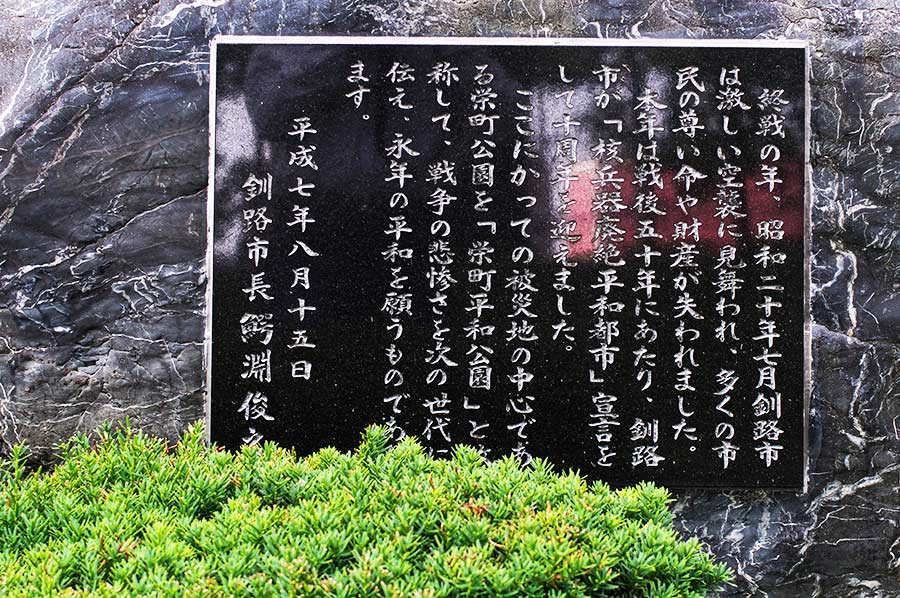 終戦の年、昭和二十年七月釧路市
は激しい空襲に見舞われ、多くの市
民の尊い命や財産が失われました。
本年は戦後五十年にあたり、釧路
市が「核兵器廃絶平和都市」宣言を
して十周年を迎えました。
ここにかつての被災地の中心であ
る栄町公園を「栄町平和公園」と
称して、戦争の悲惨さを次の世代に
伝え、永年の平和を願うものであ
ます。
平成七年八月十五日
釧路市長 鰐淵俊之